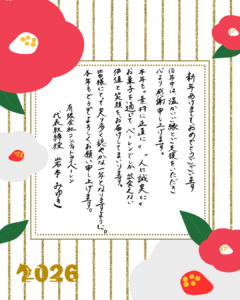 新年あけましておめでとうございます
旧年中は、温かいご縁とご支援をいただき
心より感謝申し上げます。
本年も、"素材に正直に" "人に誠実に"
お菓子を通じて、ペーレンでしか出会えない
価値と笑顔をお届けしてまいります。
皆様にとって実り多く穏やかな一年となりますように。
本年もどうぞよろしくお願い申し上げます。
有限会社コンディトライペーレン
代表取締役 岩本 みゆき
2026